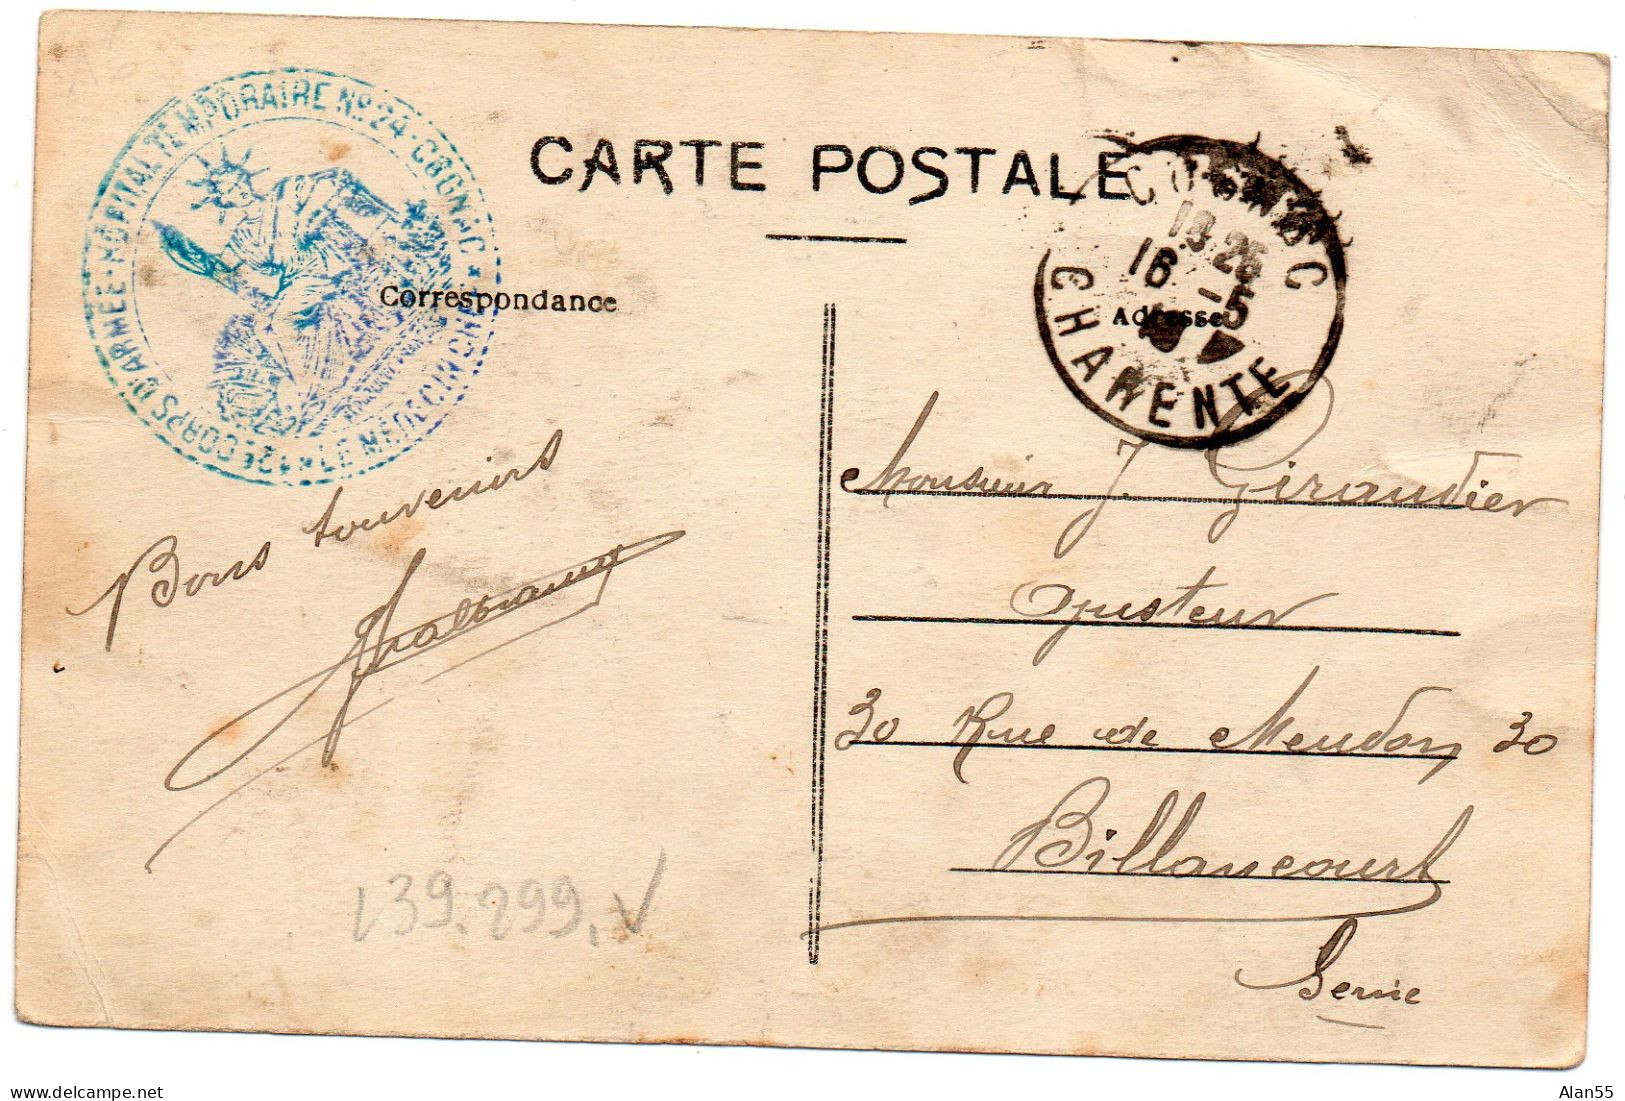 12e CORPS D'ARMÉE · HÔPITAL TEMPORAIRE No 24 · COGNAC ★
LE MÉDECIN CHEF
CARTE POSTALE
COGNAC
18 25
16 -5
CHARENTE
Correspondance
Adresse
Bons souvenirs
Monsieur J. Giraudier
Ajusteur
30 Rue de Meudon 30
Billancourt
Seine
139.299.
Alan55